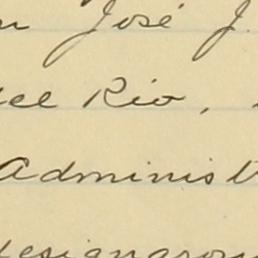 José J.
del Rio,
Administ
designaron